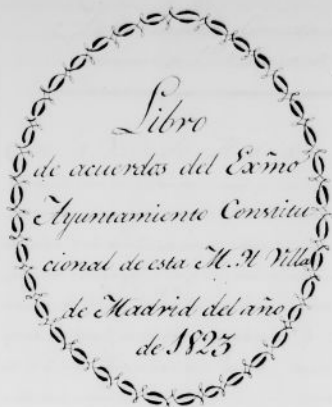 Libro
de acuerdos del Exm̃o
Ayuntamiento Constitu-
cional de esta M. H Villa
de Madrid del año
de 1823